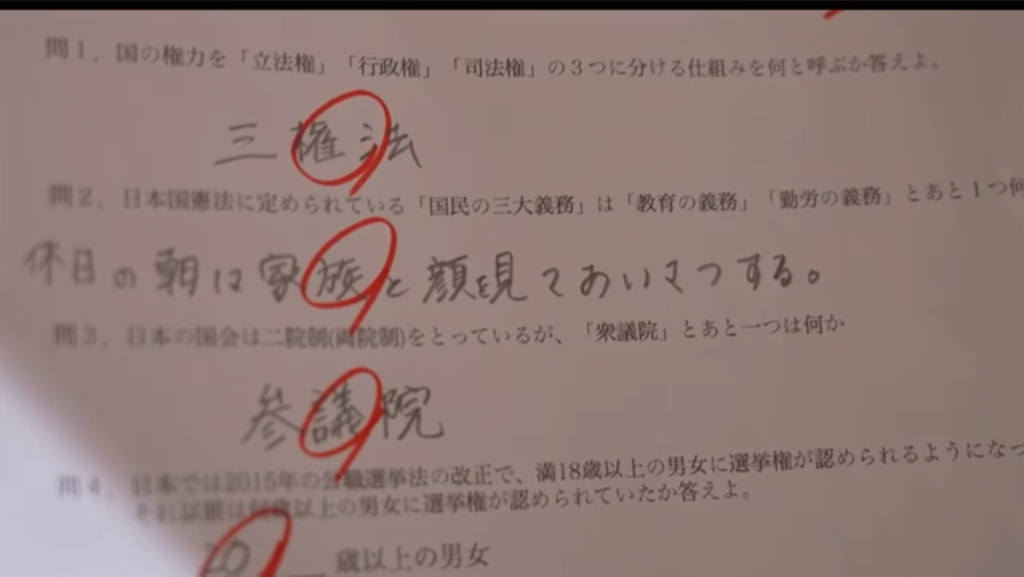 問1. 国の権力を「立法権」「行政権」「司法権」の3つに分ける仕組みを何と呼ぶか答えよ。
三権法
問2. 日本国憲法に定められている「国民の三大義務」は「教育の義務」「勤労の義務」とあと1つ何
休日の朝は家族と顔を見てあいさつする。
問3. 日本の国会は二院制(両院制)をとっているが、「衆議院」とあと一つは何か
参議院
問4. 日本では2015年の公職選挙法の改正で、満18歳以上の男女に選挙権が認められるようになっ
それ以前は何歳以上の男女に選挙権が認められていたか答えよ。
20 歳以上の男女